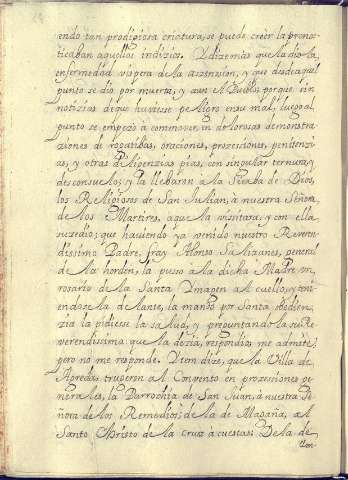 endo tan prodigiosa criatura, se puede creer la pronos-
ticaban aquellos indizios. Y dizemas que la dio la
enfermedad vispera de la aszension, y que desde aquel
punto se dio por muerta; y aun el Publo, porque sin
notizias de que huviese peligro en su mal, luego al
punto se empezò à commover, en dolorosas demonstra-
ziones de rogatibas, oraciones, prozesiones, penitenzi-
as, y otras diligenzias pias, con singular ternura, y
desconsuelo; y la llebaron à la de Dios,
los Religiosos de San Julian, à nuestra Señora
de los Martires, a que la visitara; y con ella
suzedio; que haviendo ya venido nuestro Reveren-
dissimo Padre, fray Alonso Salizanes, general
de la horden, la puso a la dicha Madre un
rosario de la Santa Ymagen al cuello, y tini-
endose la delante, la mandò por Santa obedien-
zia la pidiese la salud, y preguntando la nues-
verendissima que la dezia, respondio: me admite,
pero no me responde. Yten dize, que la Villa de
Agreda, trugeron al Conbento en prozesiones ge-
nerales, la Parrochia de San Juan, à nuestra Se-
ñora de los Remedios; de la de Magaña, al
Santo Christo de la Cruz à cuestas: De la de